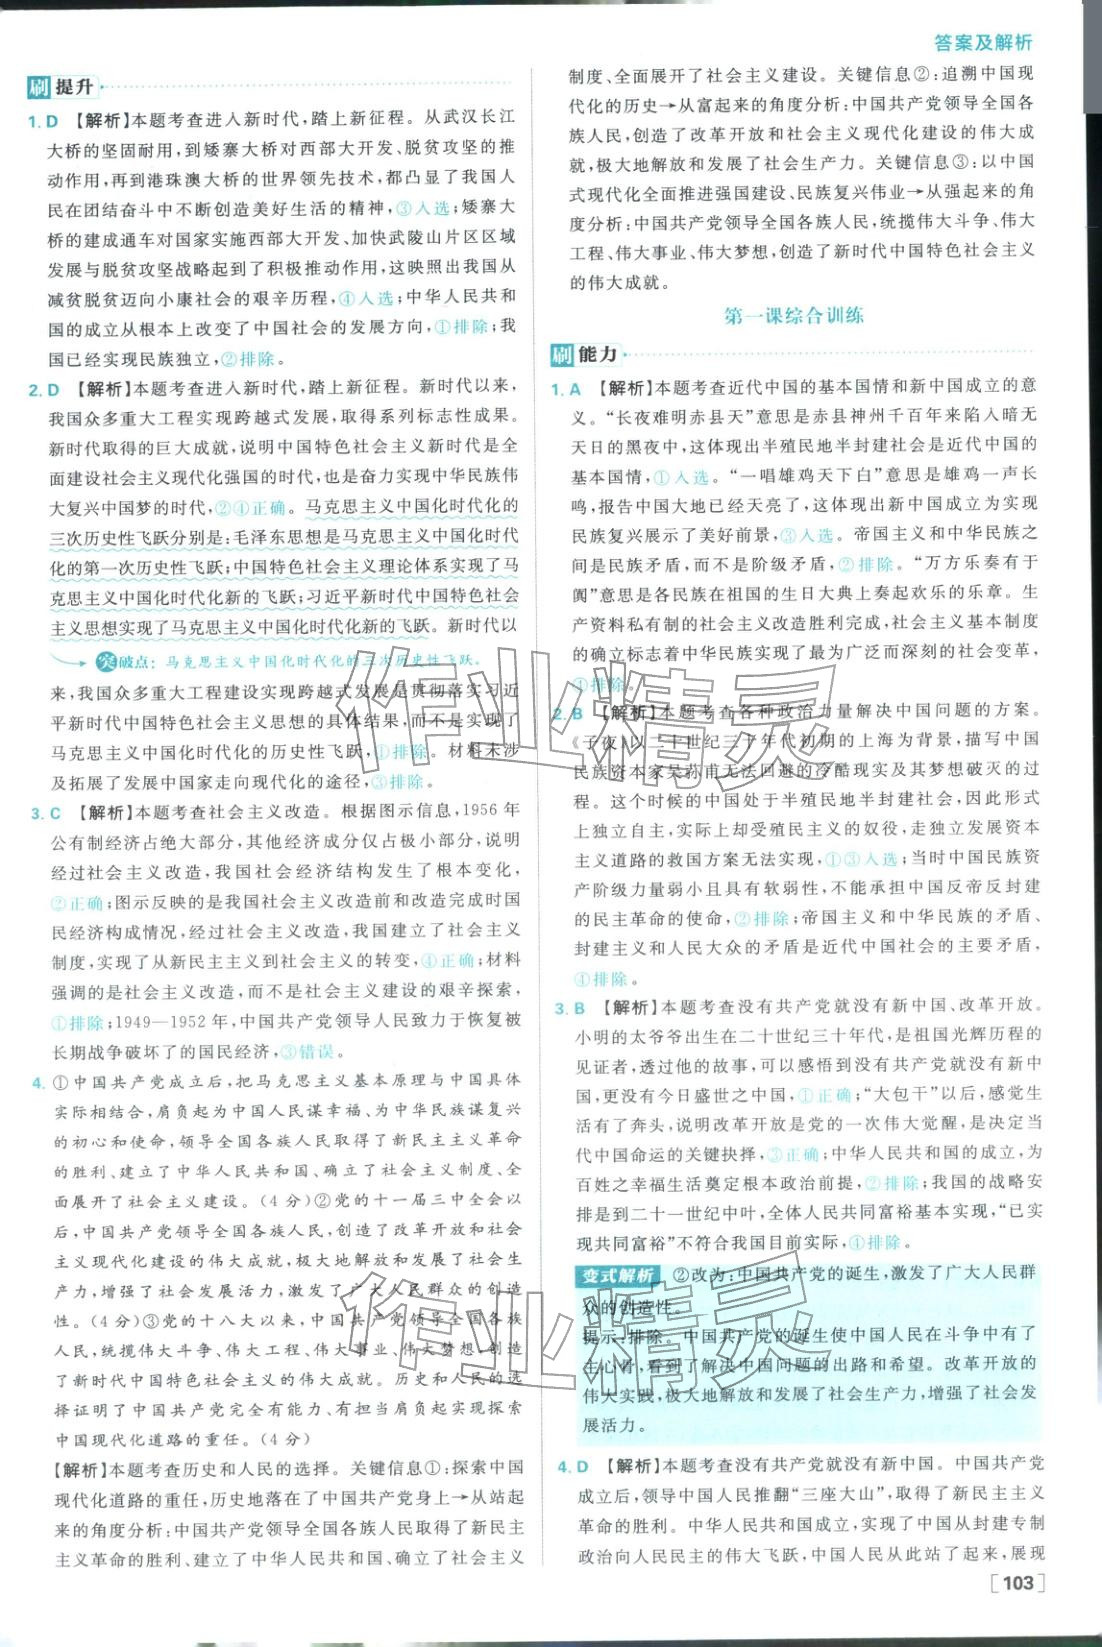 答案及解析
刷 提升
1. D 【解析】本题考查进入新时代,踏上新征程。从武汉长江
大桥的坚固耐用,到矮寨大桥对西部大开发、脱贫攻坚的推
动作用,再到港珠澳大桥的世界领先技术,都凸显了我国人
民在团结奋斗中不断创造美好生活的精神,③入选;矮寨大
桥的建成通车对国家实施西部大开发、加快武陵山片区区域
发展与脱贫攻坚战略起到了积极推动作用,这映照出我国从
减贫脱贫迈向小康社会的艰辛历程,④入选;中华人民共和
国的成立从根本上改变了中国社会的发展方向,①排除;我
国已经实现民族独立,②排除。
2. D 【解析】本题考查进入新时代,踏上新征程。新时代以来,
我国众多重大工程实现跨越式发展,取得系列标志性成果。
新时代取得的巨大成就,说明中国特色社会主义新时代是全
面建设社会主义现代化强国的时代,也是奋力实现中华民族伟
大复兴中国梦的时代,②④正确。马克思主义中国化时代化的
三次历史性飞跃分别是:毛泽东思想是马克思主义中国化时代
化的第一次历史性飞跃;中国特色社会主义理论体系实现了马
克思主义中国化时代化新的飞跃;习近平新时代中国特色社会
主义思想实现了马克思主义中国化时代化新的飞跃。新时代以
突破点:马克思主义中国化时代化的三次历史性飞跃。
来,我国众多重大工程建设实现跨越式发展是贯彻落实习近
平新时代中国特色社会主义思想的具体结果,而不是实现了
马克思主义中国化时代化的历史性飞跃,①排除。材料未涉
及拓展了发展中国家走向现代化的途径,③排除。
3. C 【解析】本题考查社会主义改造。根据图示信息,1956 年
公有制经济占绝大部分,其他经济成分仅占极小部分,说明
经过社会主义改造,我国社会经济结构发生了根本变化,
②正确;图示反映的是我国社会主义改造前和改造完成时国
民经济构成情况,经过社会主义改造,我国建立了社会主义
制度,实现了从新民主主义到社会主义的转变,④正确;材料
强调的是社会主义改造,而不是社会主义建设的艰辛探索,
①排除;1949—1952 年,中国共产党领导人民致力于恢复被
长期战争破坏了的国民经济,③错误。
4. ①中国共产党成立后,把马克思主义基本原理与中国具体
实际相结合,肩负起为中国人民谋幸福、为中华民族谋复兴
的初心和使命,领导全国各族人民取得了新民主主义革命
的胜利、建立了中华人民共和国、确立了社会主义制度、全
面展开了社会主义建设。(4 分)②党的十一届三中全会以
后,中国共产党领导全国各族人民,创造了改革开放和社会
主义现代化建设的伟大成就,极大地解放和发展了社会生
产力,增强了社会发展活力,激发了广大人民群众的创造
性。(4 分)③党的十八大以来,中国共产党领导全国各族人
民,统揽伟大斗争、伟大工程、伟大事业、伟大梦想,创造
了新时代中国特色社会主义的伟大成就。历史和人民的选
择证明了中国共产党完全有能力、有担当肩负起实现探索
中国现代化道路的重任。(4 分)
【解析】本题考查历史和人民的选择。关键信息①:探索中国
现代化道路的重任,历史地落在了中国共产党身上→从站起
来的角度分析:中国共产党领导全国各族人民取得了新民主
主义革命的胜利、建立了中华人民共和国、确立了社会主义
制度、全面展开了社会主义建设。关键信息②:追溯中国现
代化的历史→从富起来的角度分析:中国共产党领导全国各
族人民,创造了改革开放和社会主义现代化建设的伟大成
就,极大地解放和发展了社会生产力。关键信息③:以中国
式现代化全面推进强国建设、民族复兴伟业→从强起来的角
度分析:中国共产党领导全国各族人民,统揽伟大斗争、伟大
工程、伟大事业、伟大梦想,创造了新时代中国特色社会主义
的伟大成就。
第一课综合训练
刷 能力
1. A 【解析】本题考查近代中国的基本国情和新中国成立的意
义。“长夜难明赤县天”意思是赤县神州千百年来陷入暗无
天日的黑夜中,这体现出半殖民地半封建社会是近代中国的
基本国情,①入选。“一唱雄鸡天下白”意思是雄鸡一声长
鸣,报告中国大地已经天亮了,这体现出新中国成立为实现
民族复兴展示了美好前景,③入选。帝国主义和中华民族之
间是民族矛盾,而不是阶级矛盾,②排除。“万方乐奏有于
阗”意思是各民族在祖国的生日大典上奏起欢乐的乐章。生
产资料私有制的社会主义改造胜利完成,社会主义基本制度
的确立标志着中华民族实现了最为广泛而深刻的社会变革,
④排除。
2. B 【解析】本题考查各种政治力量解决中国问题的方案。
《子夜》以二十世纪三十年代初期的上海为背景,描写中国
民族资本家吴荪甫无法回避的冷酷现实及其梦想破灭的过
程。这个时候的中国处于半殖民地半封建社会,因此形式
上独立自主,实际上却受殖民主义的奴役,走独立发展资本
主义道路的救国方案无法实现,①③入选;当时中国民族资
产阶级力量弱小且具有软弱性,不能承担中国反帝反封建
的民主革命的使命,②排除;帝国主义和中华民族的矛盾、
封建主义和人民大众的矛盾是近代中国社会的主要矛盾,
④排除。
3. B 【解析】本题考查没有共产党就没有新中国、改革开放。
小明的太爷爷出生在二十世纪三十年代,是祖国光辉历程的
见证者,透过他的故事,可以感悟到没有共产党就没有新中
国,更没有今日盛世之中国,①正确;“大包干”以后,感觉生
活有了奔头,说明改革开放是党的一次伟大觉醒,是决定当
代中国命运的关键抉择,③正确;中华人民共和国的成立,为
百姓之幸福生活奠定根本政治前提,②排除;我国的战略安
排是到二十一世纪中叶,全体人民共同富裕基本实现,“已实
现共同富裕”不符合我国目前实际,④排除。
变式解析 ②改为:中国共产党的诞生,激发了广大人民群
众的创造性。
提示:排除。中国共产党的诞生使中国人民在斗争中有了
主心骨,看到了解决中国问题的出路和希望。改革开放的
伟大实践,极大地解放和发展了社会生产力,增强了社会发
展活力。
4. D 【解析】本题考查没有共产党就没有新中国。中国共产党
成立后,领导中国人民推翻“三座大山”,取得了新民主主义
革命的胜利。中华人民共和国成立,实现了中国从封建专制
政治向人民民主的伟大飞跃,中国人民从此站了起来,展现
[103]
作业精灵
作业精灵